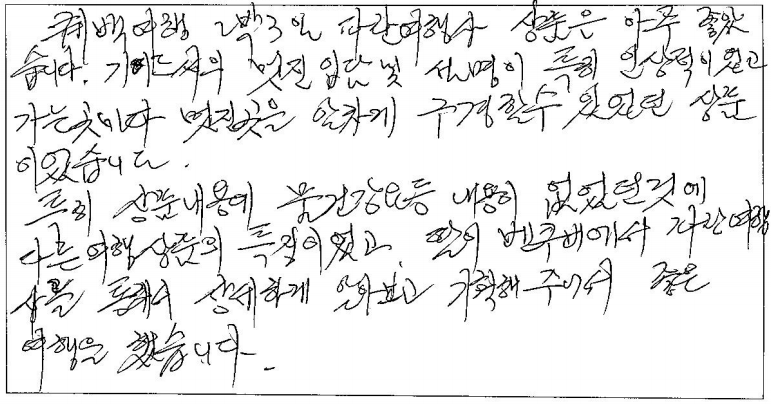 퀘백여행 2박3일 파란여행사 상품은 아주 좋았
습니다. 가이드씨의 멋진 입담 및 설명이 특히 인상적이었고
가는곳마다 멋진곳을 알차게 구경할수 있었던 상품
이었습니다.
특히 상품내용에 물건강요등 내용이 없었던것에
다른여행상품의 특징이었고, 딸이 벤쿠버에서 파란여행
사를 통해서 상세하게 알아보고 기획해주어서 좋은
여행을 했습니다.